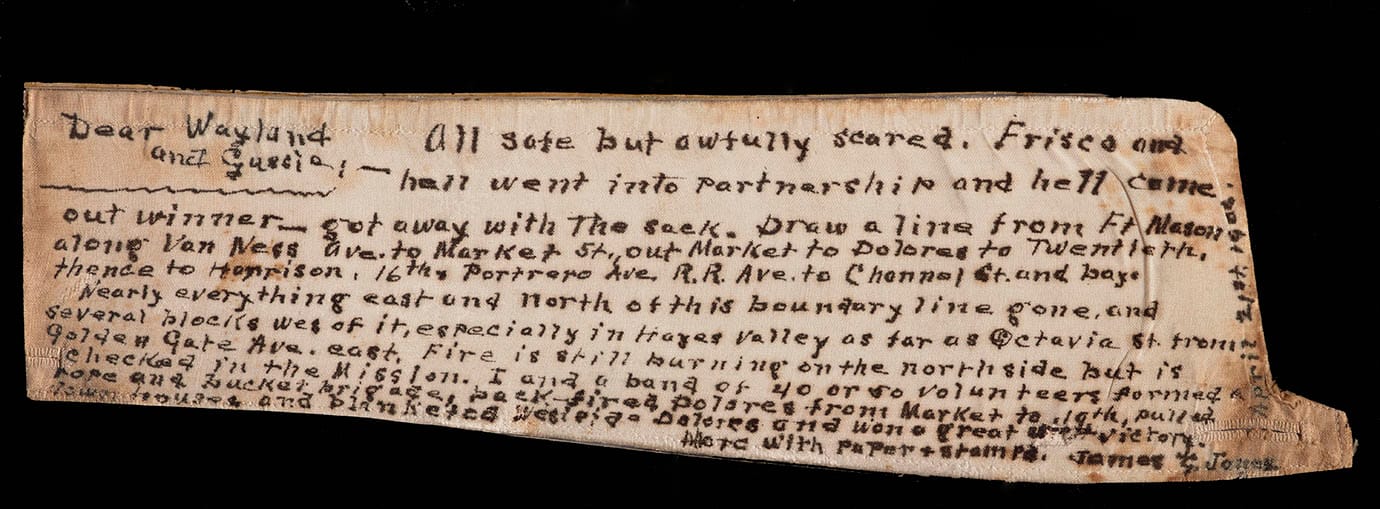 Dear Wayland
and Gussie; —
All safe but awfully scared. Frisco and
hell went into partnership and hell came
out winner — got away with The sack. Draw a line from Ft Mason
along Van Ness Ave. to Market St., out Market to Dolores to Twentieth,
thence to Harrison, 16th, Portrero Ave. R.R. Ave. to Channel St. and bay.
Nearly everything east and north of this boundary line gone, and
several blocks wes of it, especially in Hayes Valley as far as Octavia St. from
Golden Gate Ave. east. Fire is still burning on the northside but is
checked in the Mission. I and a band of 40 or 50 volunteers formed a
rope and bucket brigade, back-fired Dolores from Market to 19th, pulled
down houses and blanketed Westside Dolores and won a great victory.
More with paper + stamps. James G. Jones
April 21st. 1906.